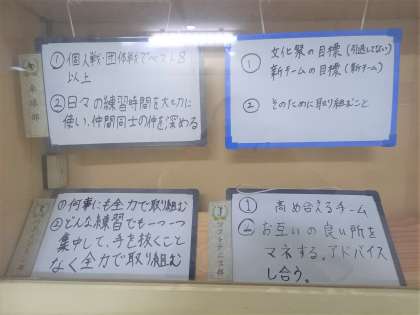 ① 個人戦・団体戦でベスト8
以上
② 日々の練習時間を大切に
使い、仲間同士の仲を深める
卓球部
① 文化祭の目標(引退してない)
新チームの目標(新チーム)
② そのために取り組むこと
① 何事にも全力で取り組む
② どんな練習でも一つ一つ
集中して、手を抜くこと
なく全力で取り組む
① 高め合えるチーム
② お互いの良い所を
マネする。アドバイス
し合う。
ソフトテニス部